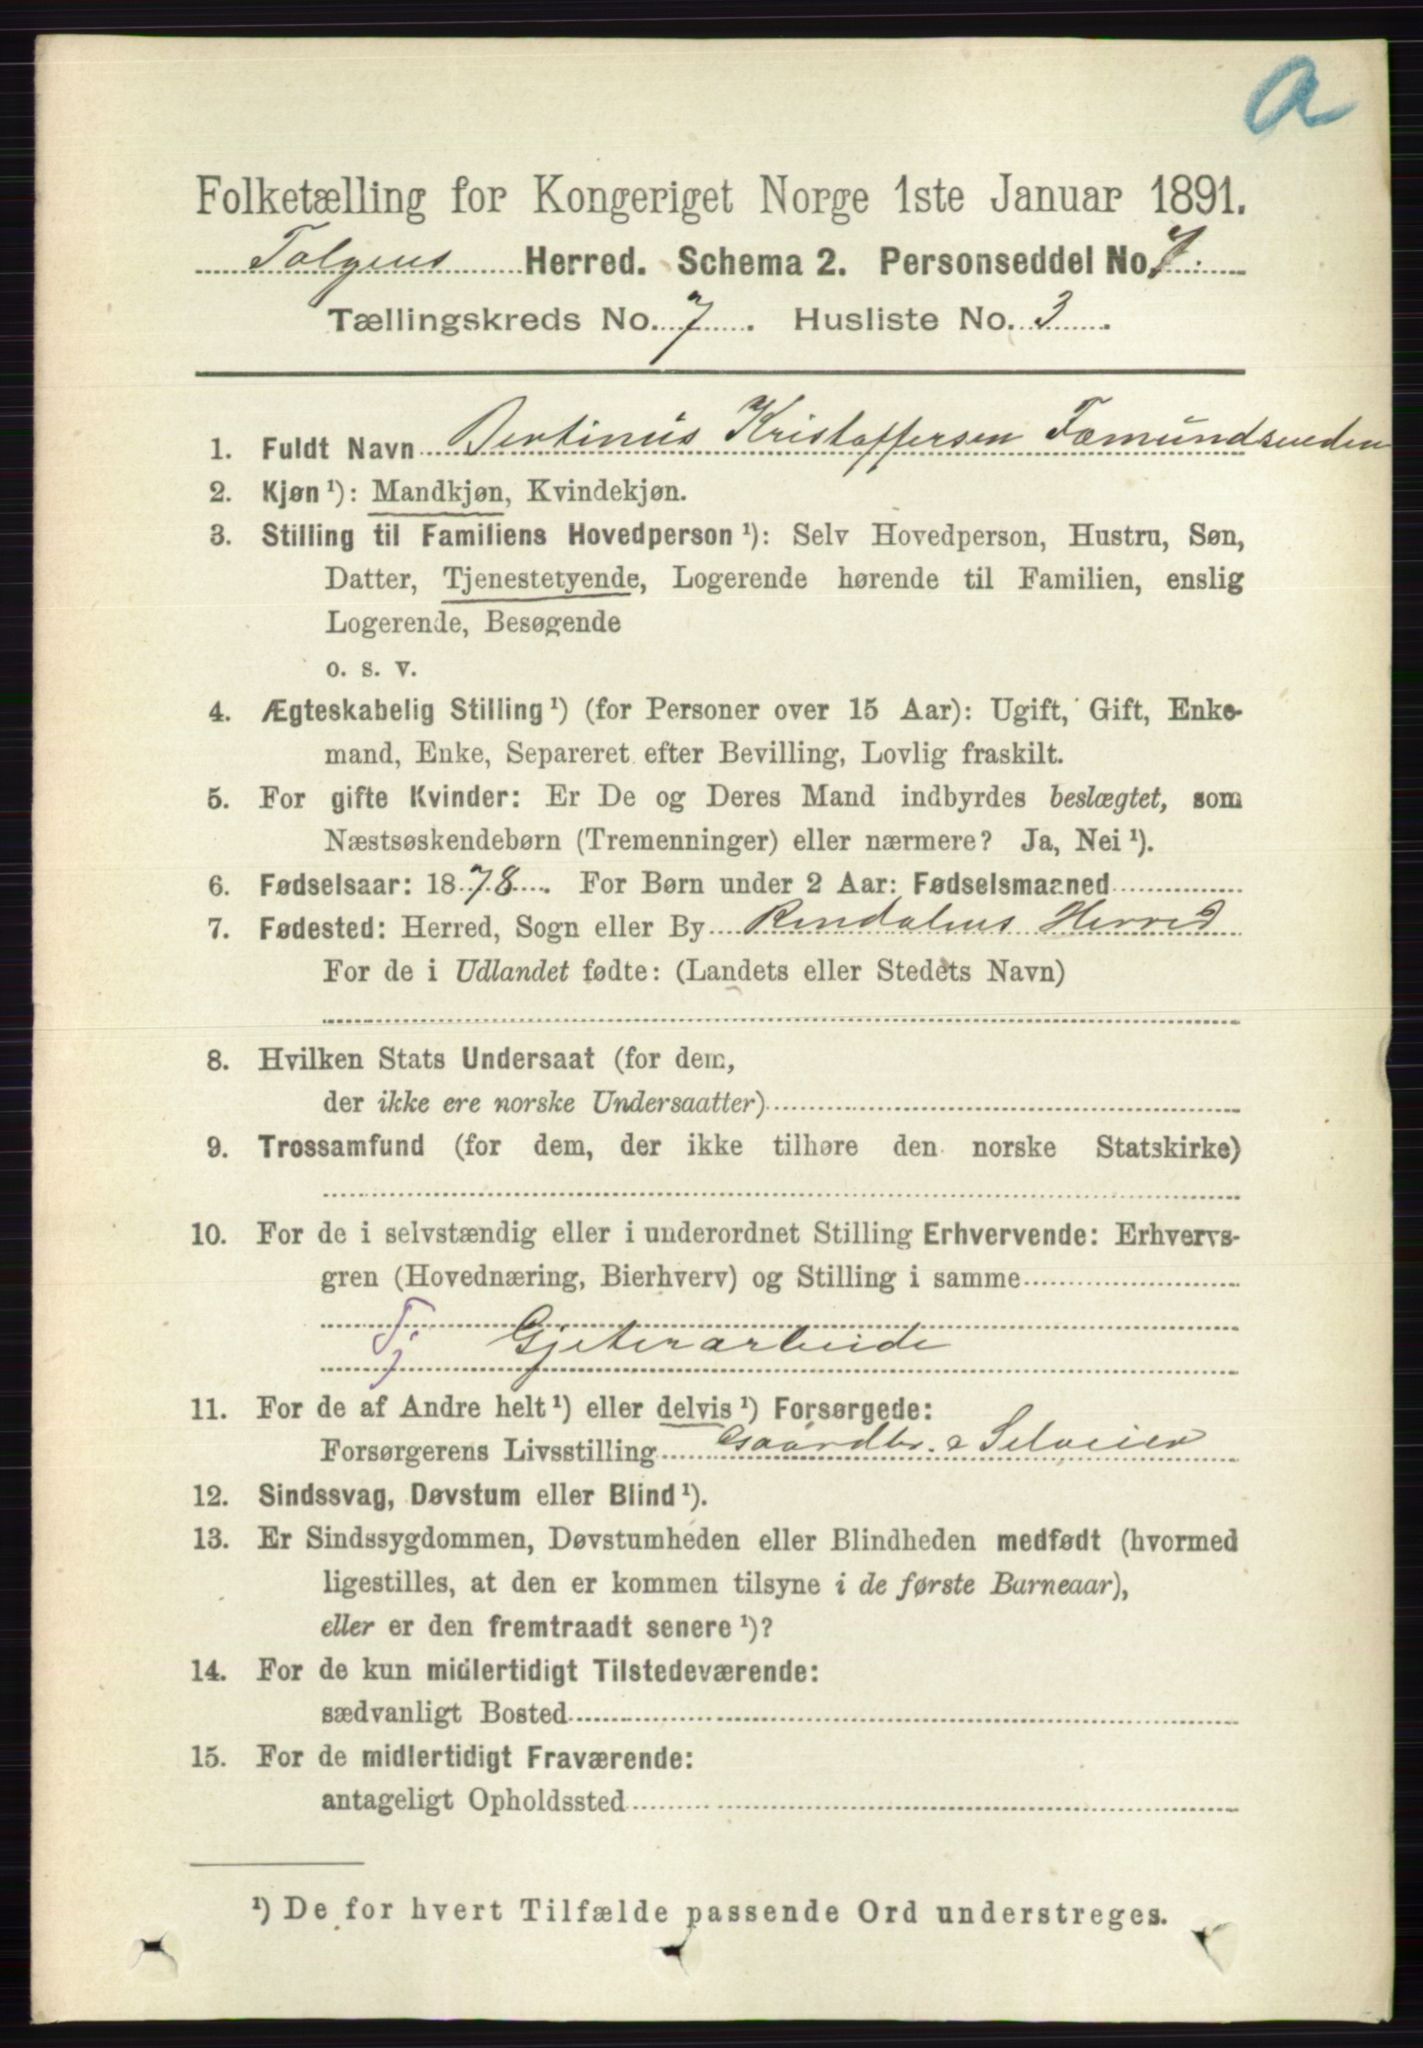 a
Folketælling for Kongeriget Norge 1ste Januar 1891.
Tolgens Herred. Schema 2. Personseddel No. 7.
Tællingskreds No. 7. Husliste No. 3.
1. Fuldt Navn Bertinus Kristoffersen Fæmundsenden
2. Kjøn ¹): Mandkjøn, Kvindekjøn.
3. Stilling til Familiens Hovedperson ¹): Selv Hovedperson, Hustru, Søn,
Datter, Tjenestetyende, Logerende hørende til Familien, enslig
Logerende, Besøgende
o. s. v.
4. Ægteskabelig Stilling ¹) (for Personer over 15 Aar): Ugift, Gift, Enke-
mand, Enke, Separeret efter Bevilling, Lovlig fraskilt.
5. For gifte Kvinder: Er De og Deres Mand indbyrdes beslægtet, som
Næstsøskendebørn (Tremenninger) eller nærmere? Ja, Nei ¹).
6. Fødselsaar: 1878. For Børn under 2 Aar: Fødselsmaaned
7. Fødested: Herred, Sogn eller By Rendalens Herred
For de i Udlandet fødte: (Landets eller Stedets Navn)
8. Hvilken Stats Undersaat (for dem,
der ikke ere norske Undersaatter)
9. Trossamfund (for dem, der ikke tilhøre den norske Statskirke)
10. For de i selvstændig eller i underordnet Stilling Erhvervende: Erhvervs-
gren (Hovednæring, Bierhverv) og Stilling i samme
Tj Gjeterarbeide
11. For de af Andre helt ¹) eller delvis ¹) Forsørgede:
Forsørgerens Livsstilling Gaardbr. & Selveier
12. Sindssvag, Døvstum eller Blind ¹).
13. Er Sindssygdommen, Døvstumheden eller Blindheden medfødt (hvormed
ligestilles, at den er kommen tilsyne i de første Barneaar),
eller er den fremtraadt senere ¹)?
14. For de kun midlertidigt Tilstedeværende:
sædvanligt Bosted
15. For de midlertidigt Fraværende:
antageligt Opholdssted
¹) De for hvert Tilfælde passende Ord understreges.